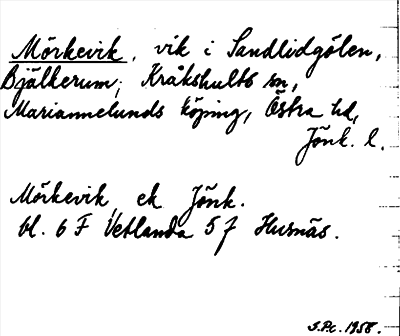 Mörkevik, vik i Sandlidgölen,
Bjälkerum, Kråkshults sn,
Mariannelunds köping, Östra hd,
Jönk. l.
Mörkevik ek Jönk.
bl. 6 F Vetlanda 5 f Husnäs.
S.Pt. 1958.